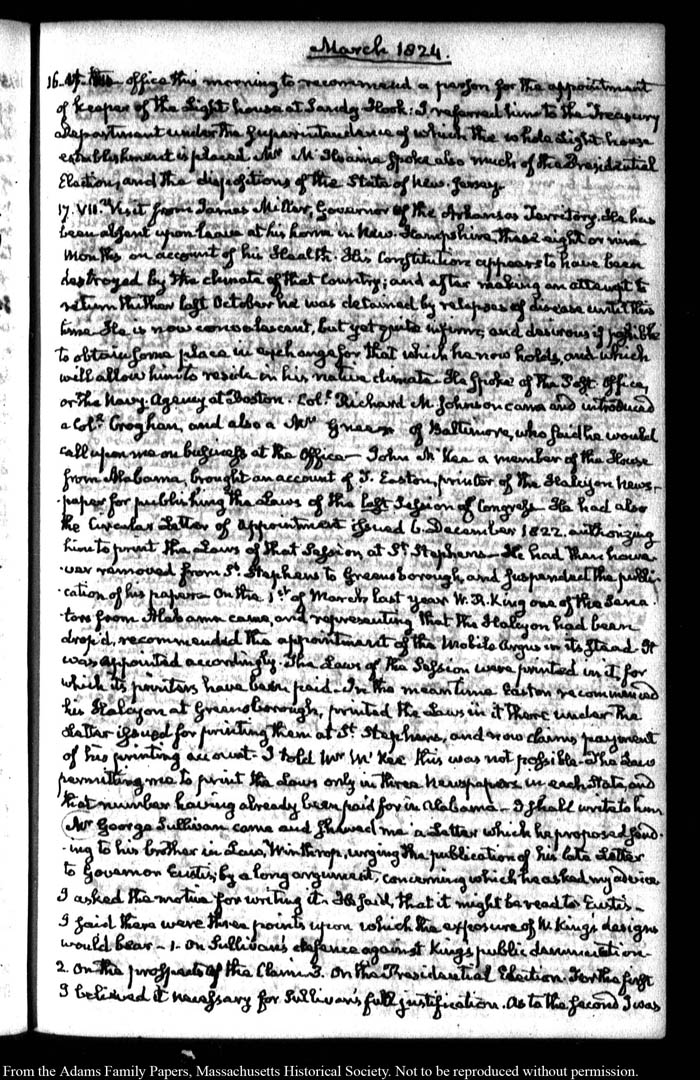 March 1824.
office this morning to recommend a person for the appointment
of Keeper of the Light house at Sandy Hook: I referred him to the Treasury
Department under the Superintendance of which the whole Light house
establishment is placed. Mr McIlvaine spoke also much of the Presidential
Election, and the dispositions of the State of New-Jersey.
17. VII. Visit from James Miller, Governor of the Arkansas Territory. He has
been absent upon leave at his home in New-Hampshire, these eight or nine
Months on account of his Health. His Constitution appears to have been
destroyed by the climate of that Country; and after making an attempt to
return thither last October he was detained by relapses of disease until this
time. He is now convalescent, but yet quite infirm, and desirous if possible
to obtain some place in exchange for that which he now holds, and which
will allow him to reside in his native climate. He spoke of the Post-Office,
or the Navy-Agency at Boston. Coll. Richard M. Johnson came and introduced
a Coll. Croghan, and also a Mr of Baltimore, who said he would
call upon me on business at the Office— John McKee a member of the House
from Alabama, brought an account of T. Easton, printer of the Halcyon News-
paper for publishing the Laws of the last Session of Congress. He had also
the Circular Letter of appointment issued 6. December 1822. authorizing
him to print the Laws of that Session at St. Stephens— He had then howe-
ver removed from St. Stephens to Greensborough, and suspended the publi-
cation of his paper. On the 1st of March last year W. R. King one of the Sena-
tors from Alabama came, and representing that the Halcyon had been
drop'd, recommended the appointment of the Mobile Argus in its stead. It
was appointed accordingly. The Laws of the Session were printed in it; for
which its printers have been paid. In the mean time Easton recommenced
his Halcyon at Greensborough, printed the Laws in it there under the
Letter issued for printing them at St. Stephens, and now claims payment
of his printing account— I told Mr McKee this was not possible— The Law
permitting me to print the Laws only in three Newspapers in each State, and
that number having already been paid for in Alabama— I shall write to him
Mr George Sullivan came and shewed me a Letter which he proposed send-
ing to his brother in Law, Winthrop, urging the publication of his late Letter
to Governor Eustis; by a long argument, concerning which he asked my advice
I asked the motive for writing it. He said, that it might be read to Eustis—
I said there were three points upon which the exposure of W. Kings designs
would bear— 1. On Sullivan's defence against King's public denunciation
2. On the prospects of the Claim. 3. On the Presidential Election. For the first
I believed it necessary for Sullivan's full justification. As to the second I was
From the Adams Family Papers, Massachusetts Historical Society. Not to be reproduced without permission.